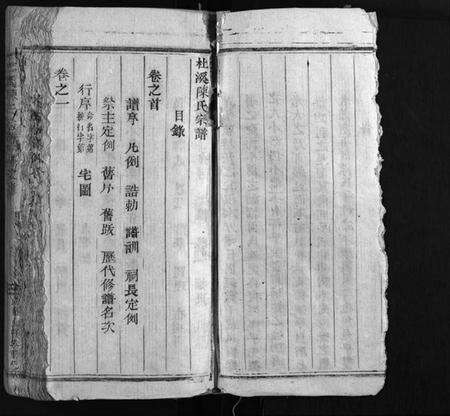 杜溪陳氏宗譜
目錄
卷之首
譜序 凡例 誥勅 譜訓 祠長定例
祭主定例 舊序 舊跋 歷代修譜名次
行序 命名字派 排行字派 宅圖
卷之一